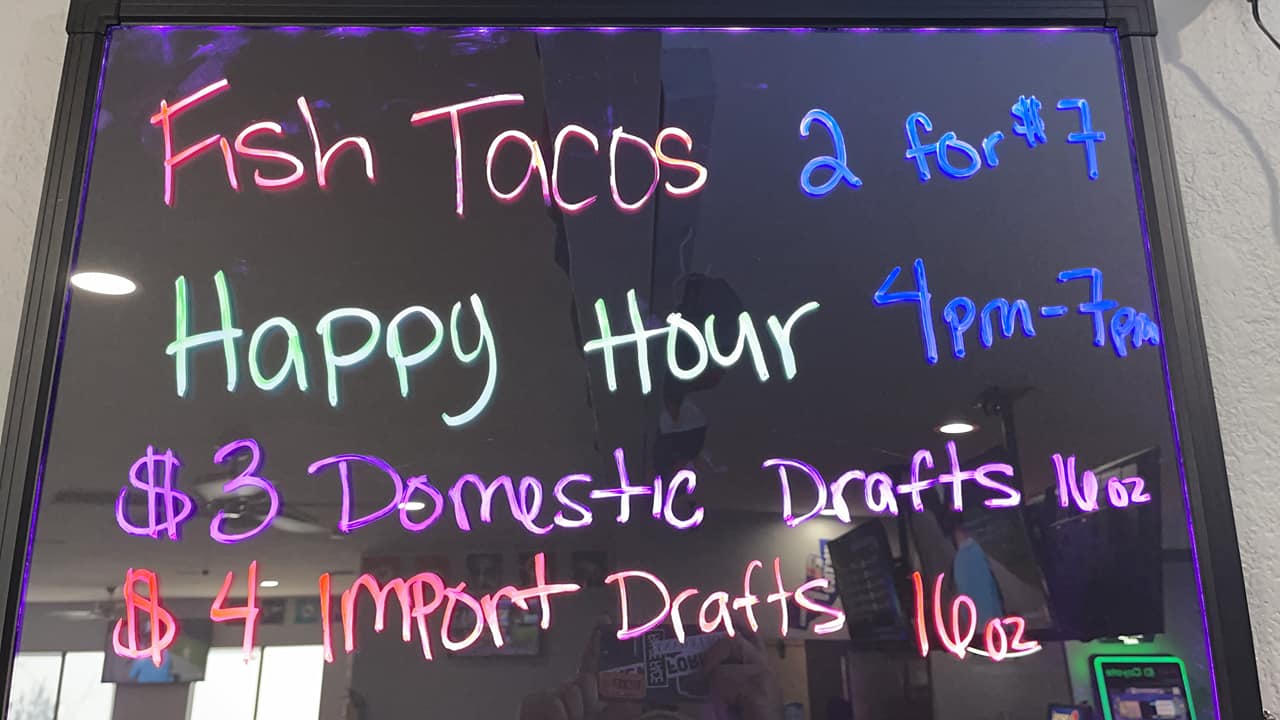 Fish Tacos 2 for $7
Happy Hour 4pm-7pm
$3 Domestic Drafts 16oz
$4 Import Drafts 16oz
El Coyote